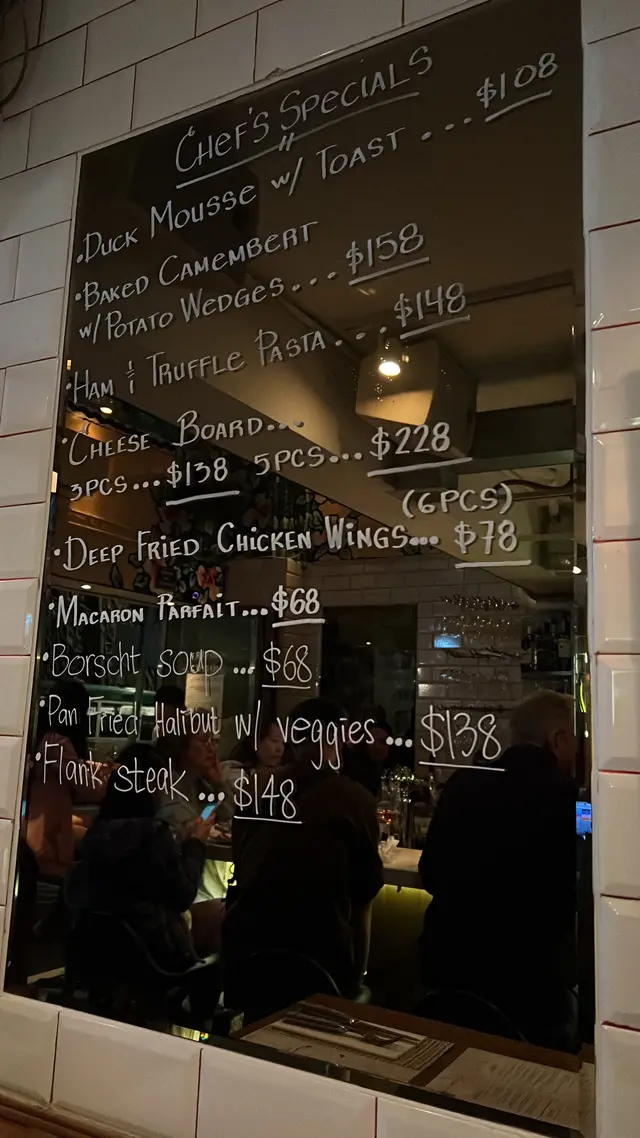 Chef's Specials
• Duck Mousse w/ Toast ... $108
• Baked Camembert
w/ Potato Wedges ... $158
• Ham & Truffle Pasta ... $148
• Cheese Board ...
3pcs ... $138 5pcs ... $228
(6pcs)
• Deep Fried Chicken Wings ... $78
• Macaron Parfait ... $68
• Borscht soup ... $68
• Pan Fried Halibut w/ veggies ... $138
• Flank steak ... $148